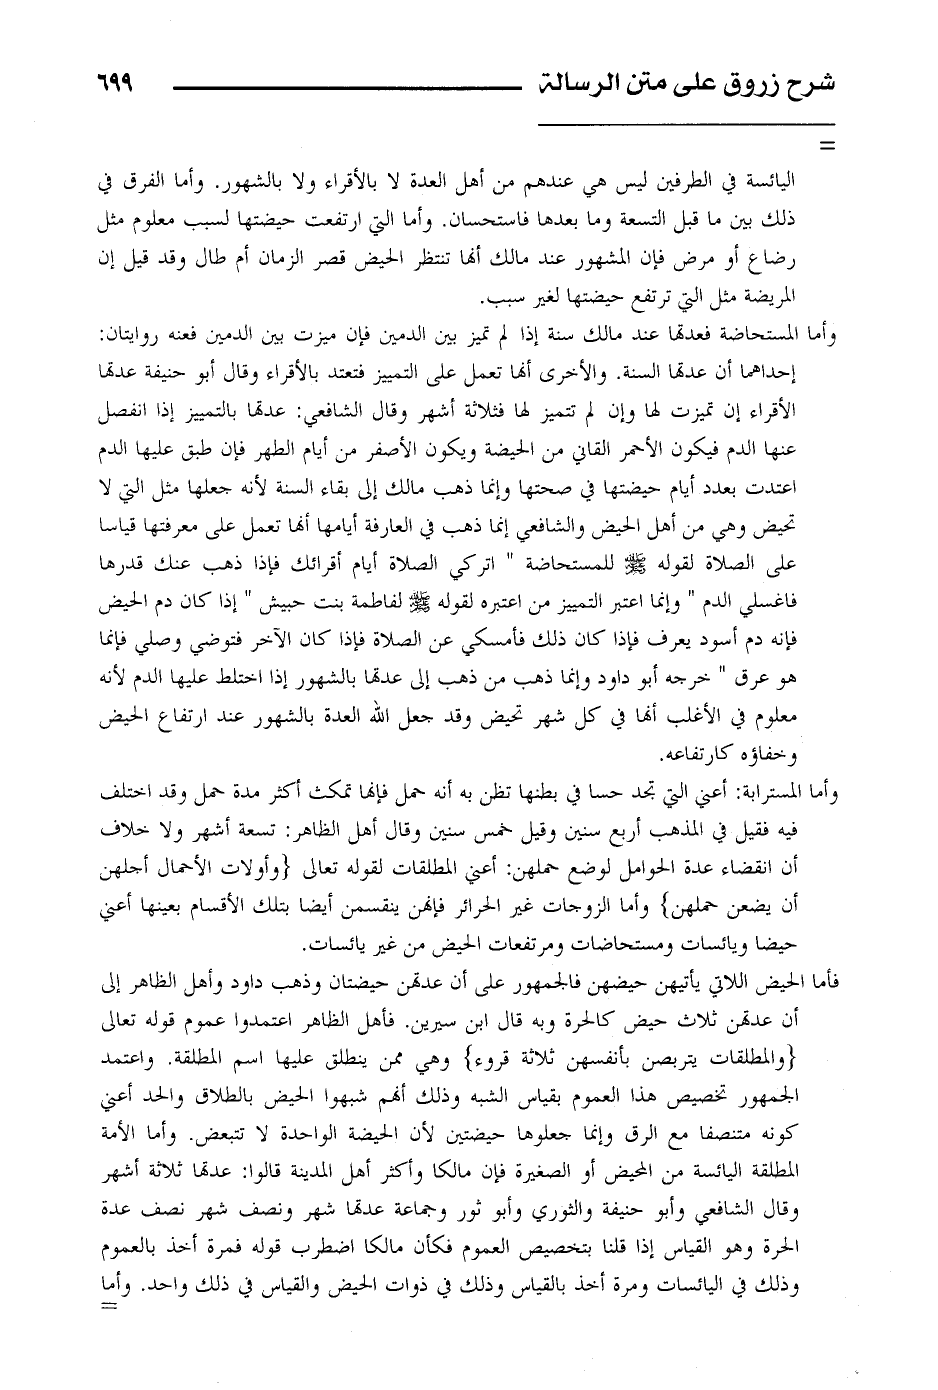 شرح زروق على متن الرسالة ٦٩٩
=
اليائسة في الطرفين ليس هي عندهم من أهل العدة لا بالأقراء ولا بالشهور. وأما الفرق في
ذلك بين ما قبل التسعة وما بعدها فاستحسان. وأما التي ارتفعت حيضتها لسبب معلوم مثل
رضاع أو مرض فإن المشهور عند مالك أنها تنتظر الحيض قصر الزمان أم طال وقد قيل إن
المريضة مثل التي ترتفع حيضتها لغير سبب.
وأما المستحاضة فعدتها عند مالك سنة إذا لم تميز بين الدمين فإن ميزت بين الدمين فعنه روايتان:
إحداهما أن عدتها السنة. والأخرى أنها تعمل على التمييز فتعتد بالأقراء وقال أبو حنيفة عدتها
الأقراء إن تميزت لها وإن لم تتميز لها فثلاثة أشهر وقال الشافعي: عدتها بالتمييز إذا انفصل
عنها الدم فيكون الأحمر القاني من الحيضة ويكون الأصفر من أيام الطهر فإن طبق عليها الدم
اعتدت بعدد أيام حيضتها في صحتها وإنما ذهب مالك إلى بقاء السنة لأنه جعلها مثل التي لا
تحيض وهي من أهل الحيض والشافعي إنما ذهب في العارفة أيامها أنها تعمل على معرفتها قياسا
على الصلاة لقوله ﷺ للمستحاضة " اتركي الصلاة أيام أقرائك فإذا ذهب عنك قدرها
فاغسلي الدم " وإنما اعتبر التمييز من اعتبره لقوله ﷺ لفاطمة بنت حبيش " إذا كان دم الحيض
فإنه دم أسود يعرف فإذا كان ذلك فأمسكي عن الصلاة فإذا كان الآخر فتوضي وصلي فإنما
هو عرق " خرجه أبو داود وإنما ذهب من ذهب إلى عدتها بالشهور إذا اختلط عليها الدم لأنه
معلوم في الأغلب أنها في كل شهر تحيض وقد جعل الله العدة بالشهور عند ارتفاع الحيض
وخفاؤه كارتفاعه.
وأما المسترابة: أعني التي تجد حسا في بطنها تظن به أنه حمل فإنها تمكث أكثر مدة حمل وقد اختلف
فيه فقيل في المذهب أربع سنين وقيل خمس سنين وقال أهل الظاهر: تسعة أشهر ولا خلاف
أن انقضاء عدة الحوامل لوضع حملهن: أعني المطلقات لقوله تعالى {وأولات الأحمال أجلهن
أن يضعن حملهن} وأما الزوجات غير الحرائر فإنهن ينقسمن أيضا بتلك الأقسام بعينها أعني
حيضا ويائسات ومستحاضات ومرتفعات الحيض من غير يائسات.
فأما الحيض اللاتي يأتيهن حيضهن فالجمهور على أن عدتهن حيضتان وذهب داود وأهل الظاهر إلى
أن عدتهن ثلاث حيض كالحرة وبه قال ابن سيرين. فأهل الظاهر اعتمدوا عموم قوله تعالى
{والمطلقات يتربصن بأنفسهن ثلاثة قروء} وهي ممن ينطلق عليها اسم المطلقة. واعتمد
الجمهور تخصيص هذا العموم بقياس الشبه وذلك أنهم شبهوا الحيض بالطلاق والحد أعني
كونه متنصفا مع الرق وإنما جعلوها حيضتين لأن الحيضة الواحدة لا تتبعض. وأما الأمة
المطلقة اليائسة من المحيض أو الصغيرة فإن مالكا وأكثر أهل المدينة قالوا: عدتها ثلاثة أشهر
وقال الشافعي وأبو حنيفة والثوري وأبو ثور وجماعة عدتها شهر ونصف شهر نصف عدة
الحرة وهو القياس إذا قلنا بتخصيص العموم فكأن مالكا اضطرب قوله فمرة أخذ بالعموم
وذلك في اليائسات ومرة أخذ بالقياس وذلك في ذوات الحيض والقياس في ذلك واحد. وأما
=